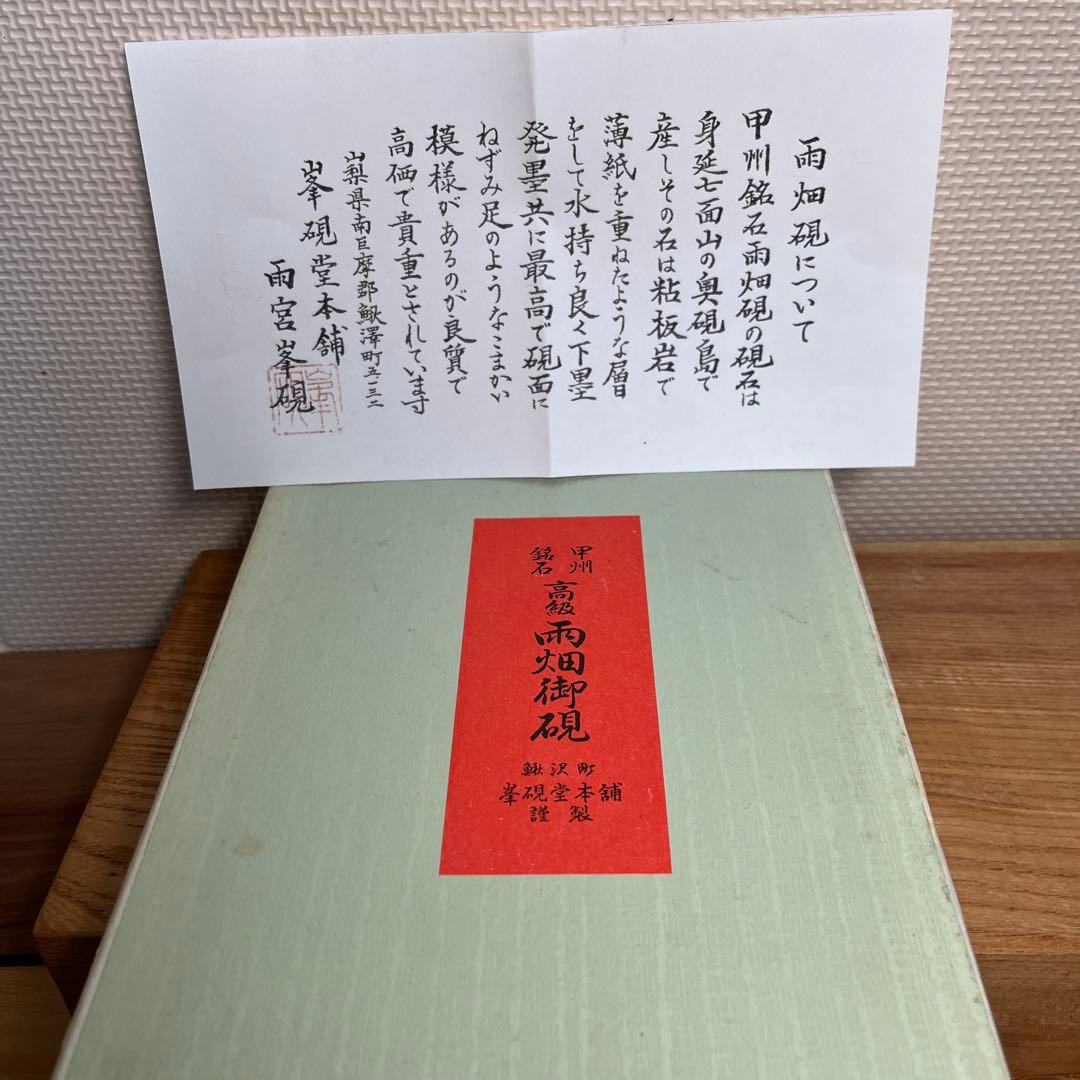 雨畑硯について
甲州銘石雨畑硯の硯石は
身延七面山の奥硯島で
産しその石は粘板岩で
薄紙を重ねたような層
をして水持ち良く下墨
発墨共に最高で硯面に
ねずみ足のようなこまかい
模様があるのが良質で
高価で貴重とされています
山梨県南巨摩郡鰍澤町五一三二
峯硯堂本舗
雨宮峯硯
甲州
銘石
高級
雨畑御硯
鰍沢町
峯硯堂本舗
謹製